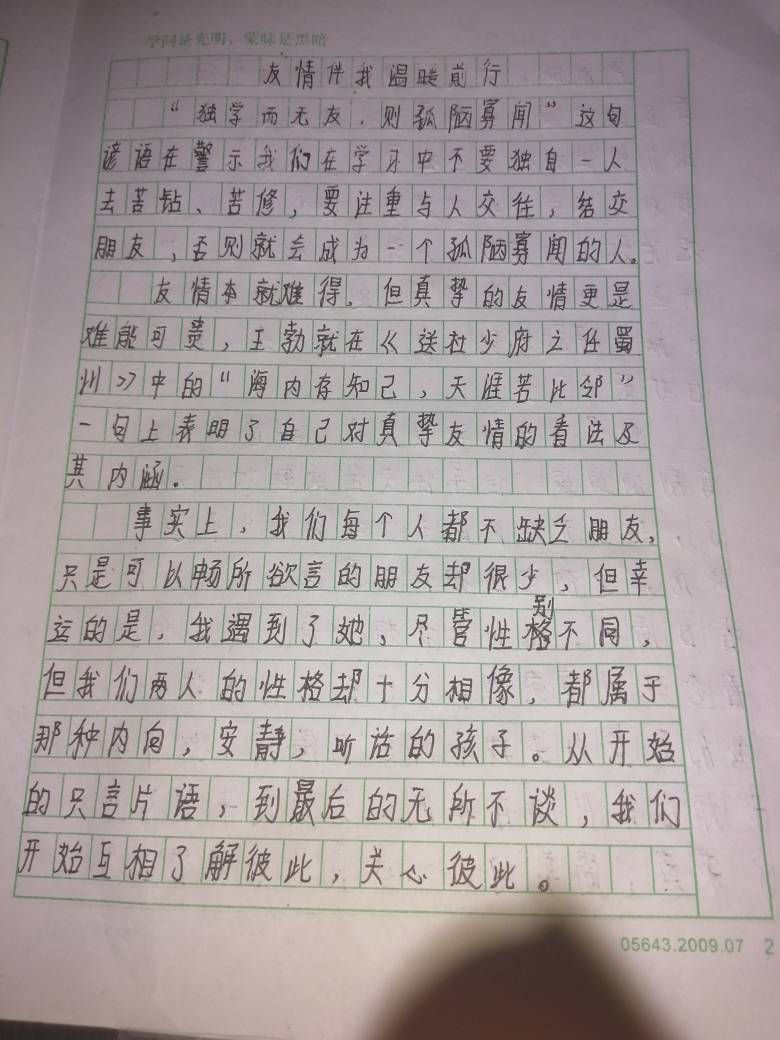 学问是光明，蒙昧是黑暗
友情伴我温暖前行
“独学而无友，则孤陋寡闻”这句
谚语在警示我们在学习中不要独自一人
去苦钻、苦修，要注重与人交往，结交
朋友，否则就会成为一个孤陋寡闻的人。
友情本就难得，但真挚的友情更是
难能可贵，王勃就在《送杜少府之任蜀
州》中的“海内存知己，天涯若比邻”
一句上表明了自己对真挚友情的看法及
其内涵。
事实上，我们每个人都不缺乏朋友，
只是可以畅所欲言的朋友却很少，但幸
运的是，我遇到了她，尽管性别不同，
但我们两人的性格却十分相像，都属于
那种内向，安静，听话的孩子。从开始
的只言片语，到最后的无所不谈，我们
开始互相了解彼此，关心彼此。
05643.2009.07 2